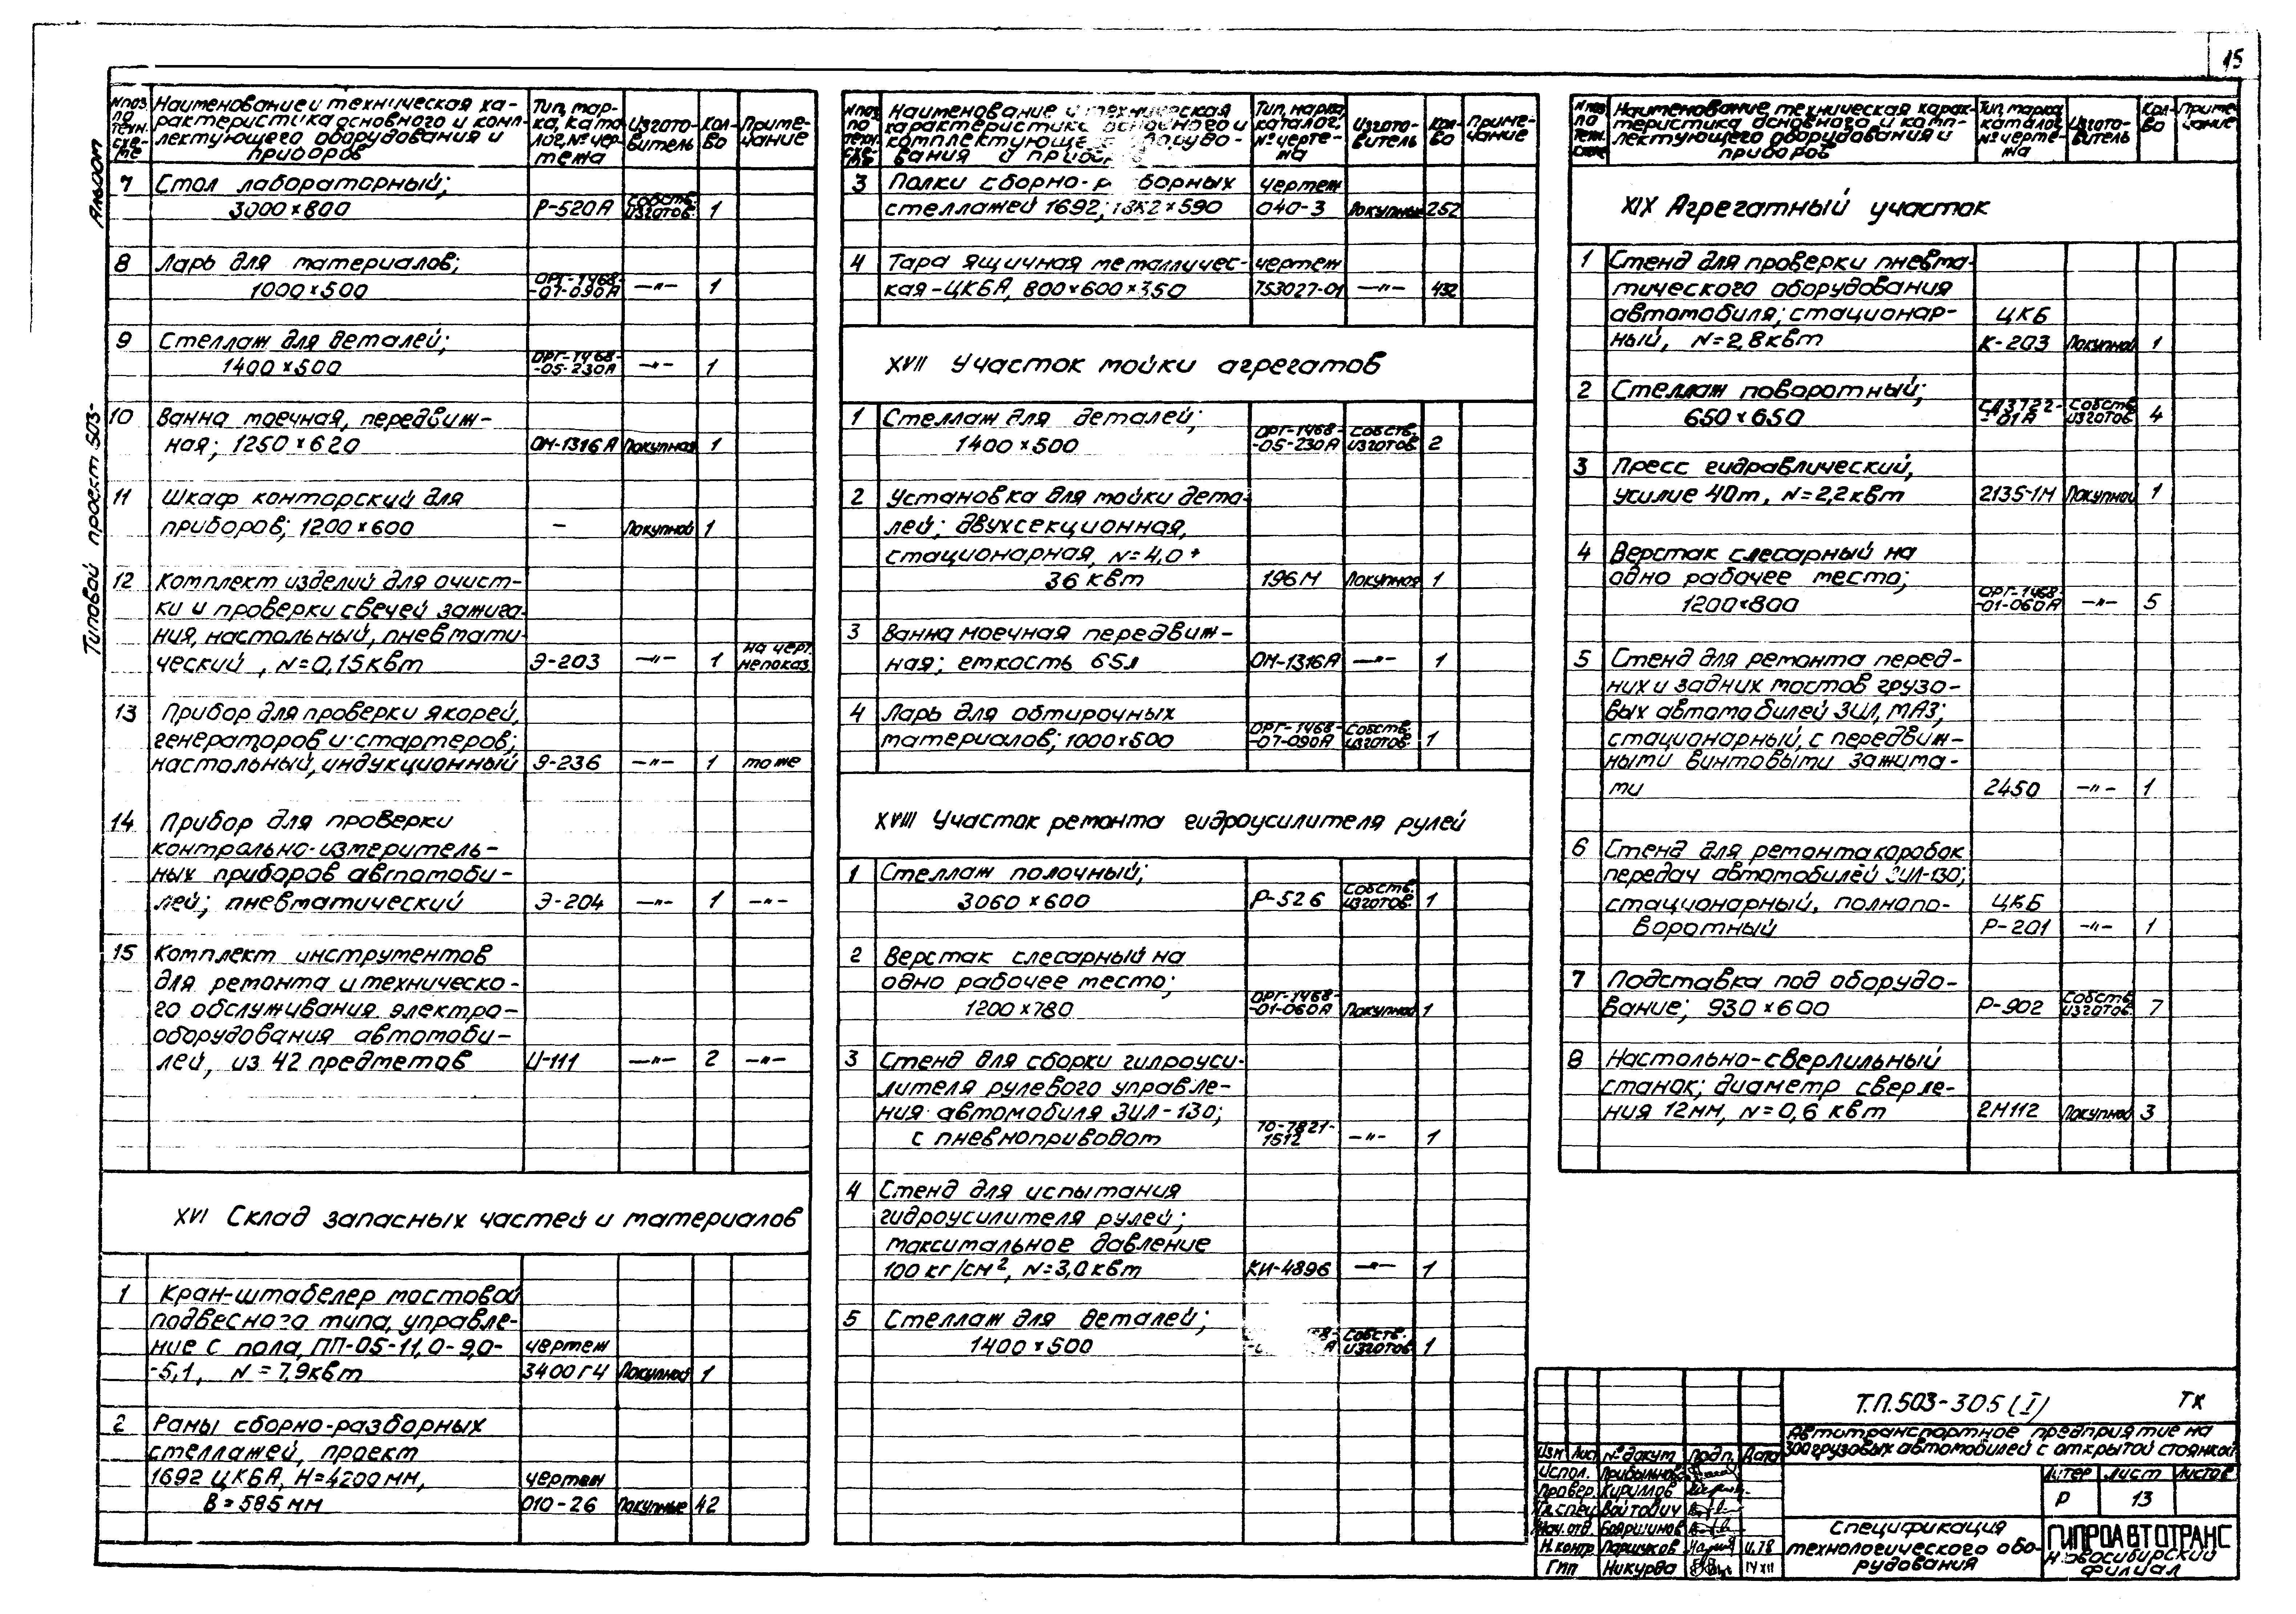 15
Альбом
Типовой проект 503-
№ поз. по техн. схе- ме | Наименование и техническая ха- рактеристика основного и комп- лектующего оборудования и приборов | Тип, мар- ка, ката- лог, № чер- тежа | Изгото- витель | Кол- во | Приме- чание
7 Стол лабораторный;
3000×800 Р-520А Собств. изготов. 1
8 Ларь для материалов;
1000×500 ОРГ-1468- -07-090А —"— 1
9 Стеллаж для деталей;
1400×500 ОРГ-1468- -05-230А —"— 1
10 Ванна моечная, передвиж-
ная; 1250×620 ОМ-1316А Покупная 1
11 Шкаф конторский для
приборов; 1200×600 – Покупной 1
12 Комплект изделий для очист-
ки и проверки свечей зажига-
ния, настольный, пневмати-
ческий, N=0,15квт Э-203 —"— 1 на черт. не показ.
13 Прибор для проверки якорей,
генераторов и стартеров;
настольный, индукционный Э-236 —"— 1 то же
14 Прибор для проверки
контрольно-измеритель-
ных приборов автомоби-
лей; пневматический Э-204 —"— 1 —"—
15 Комплект инструментов
для ремонта и техническо-
го обслуживания электро-
оборудования автомоби-
лей, из 42 предметов И-111 —"— 2 —"—
XVI Склад запасных частей и материалов
1 Кран-штабелер мостовой
подвесного типа, управле-
ние с пола, ПП-05-11,0-9,0- чертеж
-5,1, N=7,9квт 3400ГЧ Покупной 1
2 Рамы сборно-разборных
стеллажей, проект
1692 ЦКБА, H=4200мм, чертеж
B=585мм 010-26 Покупные 42
№ поз. по техн. схе- ме | Наименование и техническая характеристика основного и комплектующего оборудо- вания и приборов | Тип, марка, каталог, № черте- жа | Изгото- витель | Кол- во | Приме- чание
3 Полки сборно-разборных чертеж
стеллажей 1692; 1882×590 040-3 Покупные 252
4 Тара ящичная металличес- чертеж
кая-ЦКБА, 800×600×350 753027-01 —"— 432
XVII Участок мойки агрегатов
1 Стеллаж для деталей;
1400×500 ОРГ-1468- -05-230А Собств. изготов. 2
2 Установка для мойки дета-
лей; двухсекционная,
стационарная, N=4,0+
36 квт 196М Покупная 1
3 Ванна моечная передвиж-
ная; емкость 65л ОМ-1316А —"— 1
4 Ларь для обтирочных
материалов; 1000×500 ОРГ-1468- -07-090А Собств. изготов. 1
XVIII Участок ремонта гидроусилителя рулей
1 Стеллаж полочный;
3060×600 Р-526 Собств. изготов. 1
2 Верстак слесарный на
одно рабочее место;
1200×780 ОРГ-1468- -01-060А Покупной 1
3 Стенд для сборки гидроуси-
лителя рулевого управле-
ния автомобиля ЗИЛ-130;
с пневмоприводом 70-7821- 1512 —"— 1
4 Стенд для испытания
гидроусилителя рулей;
максимальное давление
100 кг/см², N=3,0квт КИ-4896 —"— 1
5 Стеллаж для деталей;
1400×500 Собств. изготов. 1
№ поз. по техн. схеме | Наименование техническая харак- теристика основного и комп- лектующего оборудования и приборов | Тип, марка, каталог, № черте- жа | Изгото- витель | Кол- во | Приме- чание
XIX Агрегатный участок
1 Стенд для проверки пневма-
тического оборудования
автомобиля; стационар- ЦКБ
ный, N=2,8квт К-203 Покупной 1
2 Стеллаж поворотный;
650×650 СД3722- -01А Собств. изготов. 4
3 Пресс гидравлический,
усилие 40т, N=2,2квт 2135-1М Покупной 1
4 Верстак слесарный на
одно рабочее место;
1200×800 ОРГ-1468- -01-060А —"— 5
5 Стенд для ремонта перед-
них и задних мостов грузо-
вых автомобилей ЗИЛ, МАЗ;
стационарный, с передвиж-
ными винтовыми зажима-
ми 2450 —"— 1
6 Стенд для ремонта коробок
передач автомобилей ЗИЛ-130;
стационарный, полнопо- ЦКБ
воротный Р-201 —"— 1
7 Подставка под оборудо-
вание; 930×600 Р-902 Собств. изготов. 7
8 Настольно-сверлильный
станок; диаметр сверле-
ния 12мм, N=0,6 квт 2М112 Покупной 3
Т.П.503-305(I) ТХ
Автотранспортное предприятие на
300 грузовых автомобилей с открытой стоянкой
Изм Лист № докум Подп. Дата
Испол. Прибыльнов
Провер. Киримов
Гл.спец Войтович
Нач.отд. Бояршинов
Н.контр Паршуков
ГИП Никурва
Литер Лист Листов
Р 13
Спецификация
технологического обо-
рудования
ГИПРОАВТОТРАНС
Новосибирский
филиал